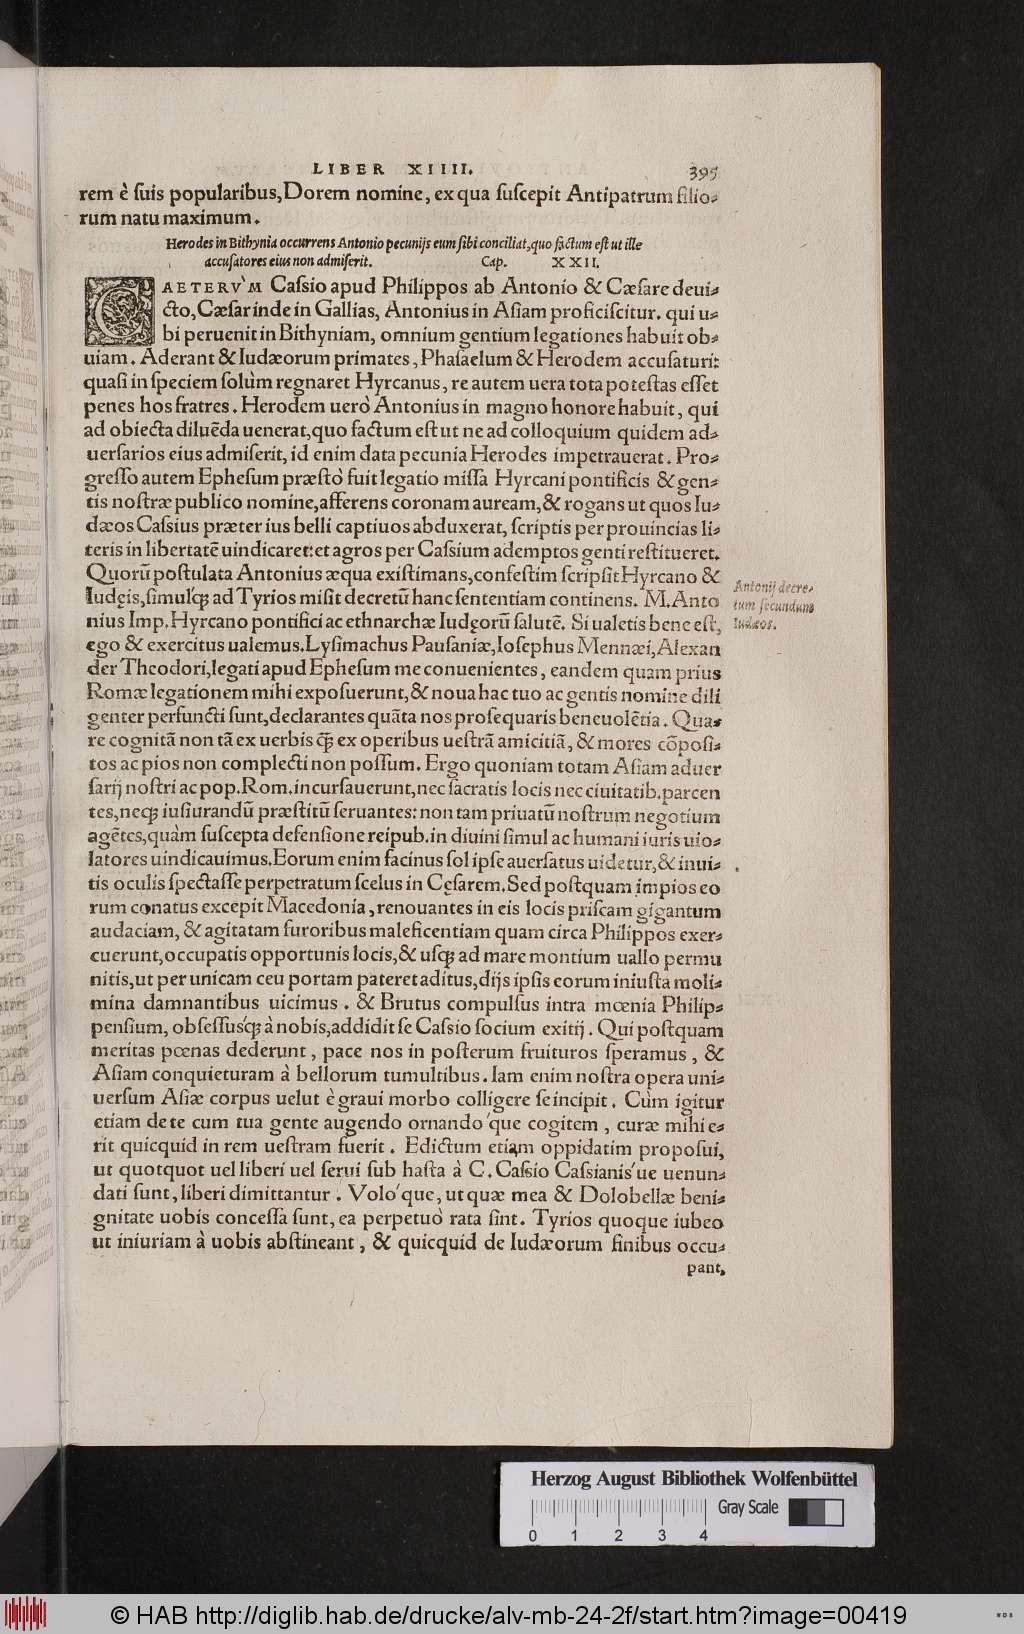 LIBER XIIII. 395
rem è ſuis popularibus, Dorem nomine, ex qua ſuſcepit Antipatrum filio-
rum natu maximum.
Herodes in Bithynia occurrens Antonio pecunijs eum ſibi conciliat, quo factum eſt ut ille
accuſatores eius non admiſerit. Cap. XXII.
CAETERV̀M Caſsio apud Philippos ab Antonio & Cæſare deui-
cto, Cæſar inde in Gallias, Antonius in Aſiam proficiſcitur. qui u-
bi peruenit in Bithyniam, omnium gentium legationes habuit ob-
uiam. Aderant & Iudæorum primates, Phaſaelum & Herodem accuſaturi:
quaſi in ſpeciem ſolùm regnaret Hyrcanus, re autem uera tota poteſtas eſſet
penes hos fratres. Herodem uerò Antonius in magno honore habuit, qui
ad obiecta diluẽda uenerat, quo factum eſt ut ne ad colloquium quidem ad-
uerſarios eius admiſerit, id enim data pecunia Herodes impetrauerat. Pro-
greſſo autem Epheſum præſtò fuit legatio miſſa Hyrcani pontificis & gen-
tis noſtræ publico nomine, afferens coronam auream, & rogans ut quos Iu-
dæos Caſsius præter ius belli captiuos abduxerat, ſcriptis per prouincias li-
teris in libertatẽ uindicaret: et agros per Caſsium ademptos genti reſtitueret.
Quorũ poſtulata Antonius æqua exiſtimans, confeſtim ſcripſit Hyrcano &
Iudęis, ſimulq́; ad Tyrios miſit decretũ hanc ſententiam continens. M. Anto
nius Imp. Hyrcano pontifici ac ethnarchæ Iudęorũ ſalutẽ. Si ualetis bene eſt,
ego & exercitus ualemus. Lyſimachus Pauſaniæ, Ioſephus Mennæi, Alexan
der Theodori, legati apud Epheſum me conuenientes, eandem quam prius
Romæ legationem mihi expoſuerunt, & noua hac tuo ac gentis nomine dili
genter perfuncti ſunt, declarantes quãta nos proſequaris beneuolẽtia. Qua-
re cognitã non tã ex uerbis q̃ꝫ ex operibus ueſtrã amicitiã, & mores cõpoſi-
tos ac pios non complecti non poſſum. Ergo quoniam totam Aſiam aduer
ſarij noſtri ac pop. Rom. incurſauerunt, nec ſacratis locis nec ciuitatib. parcen
tes, neq; iuſiurandũ præſtitũ ſeruantes: non tam priuatũ noſtrum negotium
agẽtes, quàm ſuſcepta defenſione reipub. in diuini ſimul ac humani iuris uio-
latores uindicauimus. Eorum enim facinus ſol ipſe auerſatus uidetur, & inui-
tis oculis ſpectaſſe perpetratum ſcelus in Cęſarem. Sed poſtquam impios eo
rum conatus excepit Macedonia, renouantes in eis locis priſcam gigantum
audaciam, & agitatam furoribus maleficentiam quam circa Philippos exer-
cuerunt, occupatis opportunis locis, & uſq; ad mare montium uallo permu
nitis, ut per unicam ceu portam pateret aditus, dijs ipſis eorum iniuſta moli-
mina damnantibus uicimus. & Brutus compulſus intra mœnia Philip-
penſium, obſeſſusq́; à nobis, addidit ſe Caſsio ſocium exitij. Qui poſtquam
meritas pœnas dederunt, pace nos in poſterum fruituros ſperamus, &
Aſiam conquieturam à bellorum tumultibus. Iam enim noſtra opera uni-
uerſum Aſiæ corpus uelut è graui morbo colligere ſe incipit. Cùm igitur
etiam de te cum tua gente augendo ornandóque cogitem, curæ mihi e-
rit quicquid in rem ueſtram fuerit. Edictum etiam oppidatim propoſui,
ut quotquot uel liberi uel ſerui ſub haſta à C. Caſsio Caſsianisúe uenun-
dati ſunt, liberi dimittantur. Volóque, ut quæ mea & Dolobellæ beni-
gnitate uobis conceſſa ſunt, ea perpetuò rata ſint. Tyrios quoque iubeo
ut iniuriam à uobis abſtineant, & quicquid de Iudæorum finibus occu-
pant,
Antonij decre-
tum ſecundum
Iudæos.
Herzog August Bibliothek Wolfenbüttel
Gray Scale
0 1 2 3 4
© HAB http://diglib.hab.de/drucke/alv-mb-24-2f/start.htm?image=00419